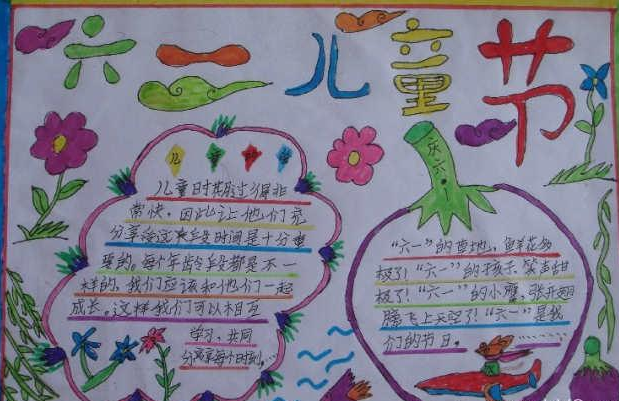 六一儿童节
儿童时代
儿童时期过得非
常快，因此让他们充
分享给这段时间是十分重
要的。每个年龄段都是不一
样的，我们应该和他们一起
成长。这样我们可以相互
学习，共同
分享每个时刻……
庆六一
“六一”的草地，鲜花多
极了！“六一”的孩子，笑声甜
极了！“六一”的小鹰，张开翅
膀飞上天空了！“六一”是我
们的节日。…………